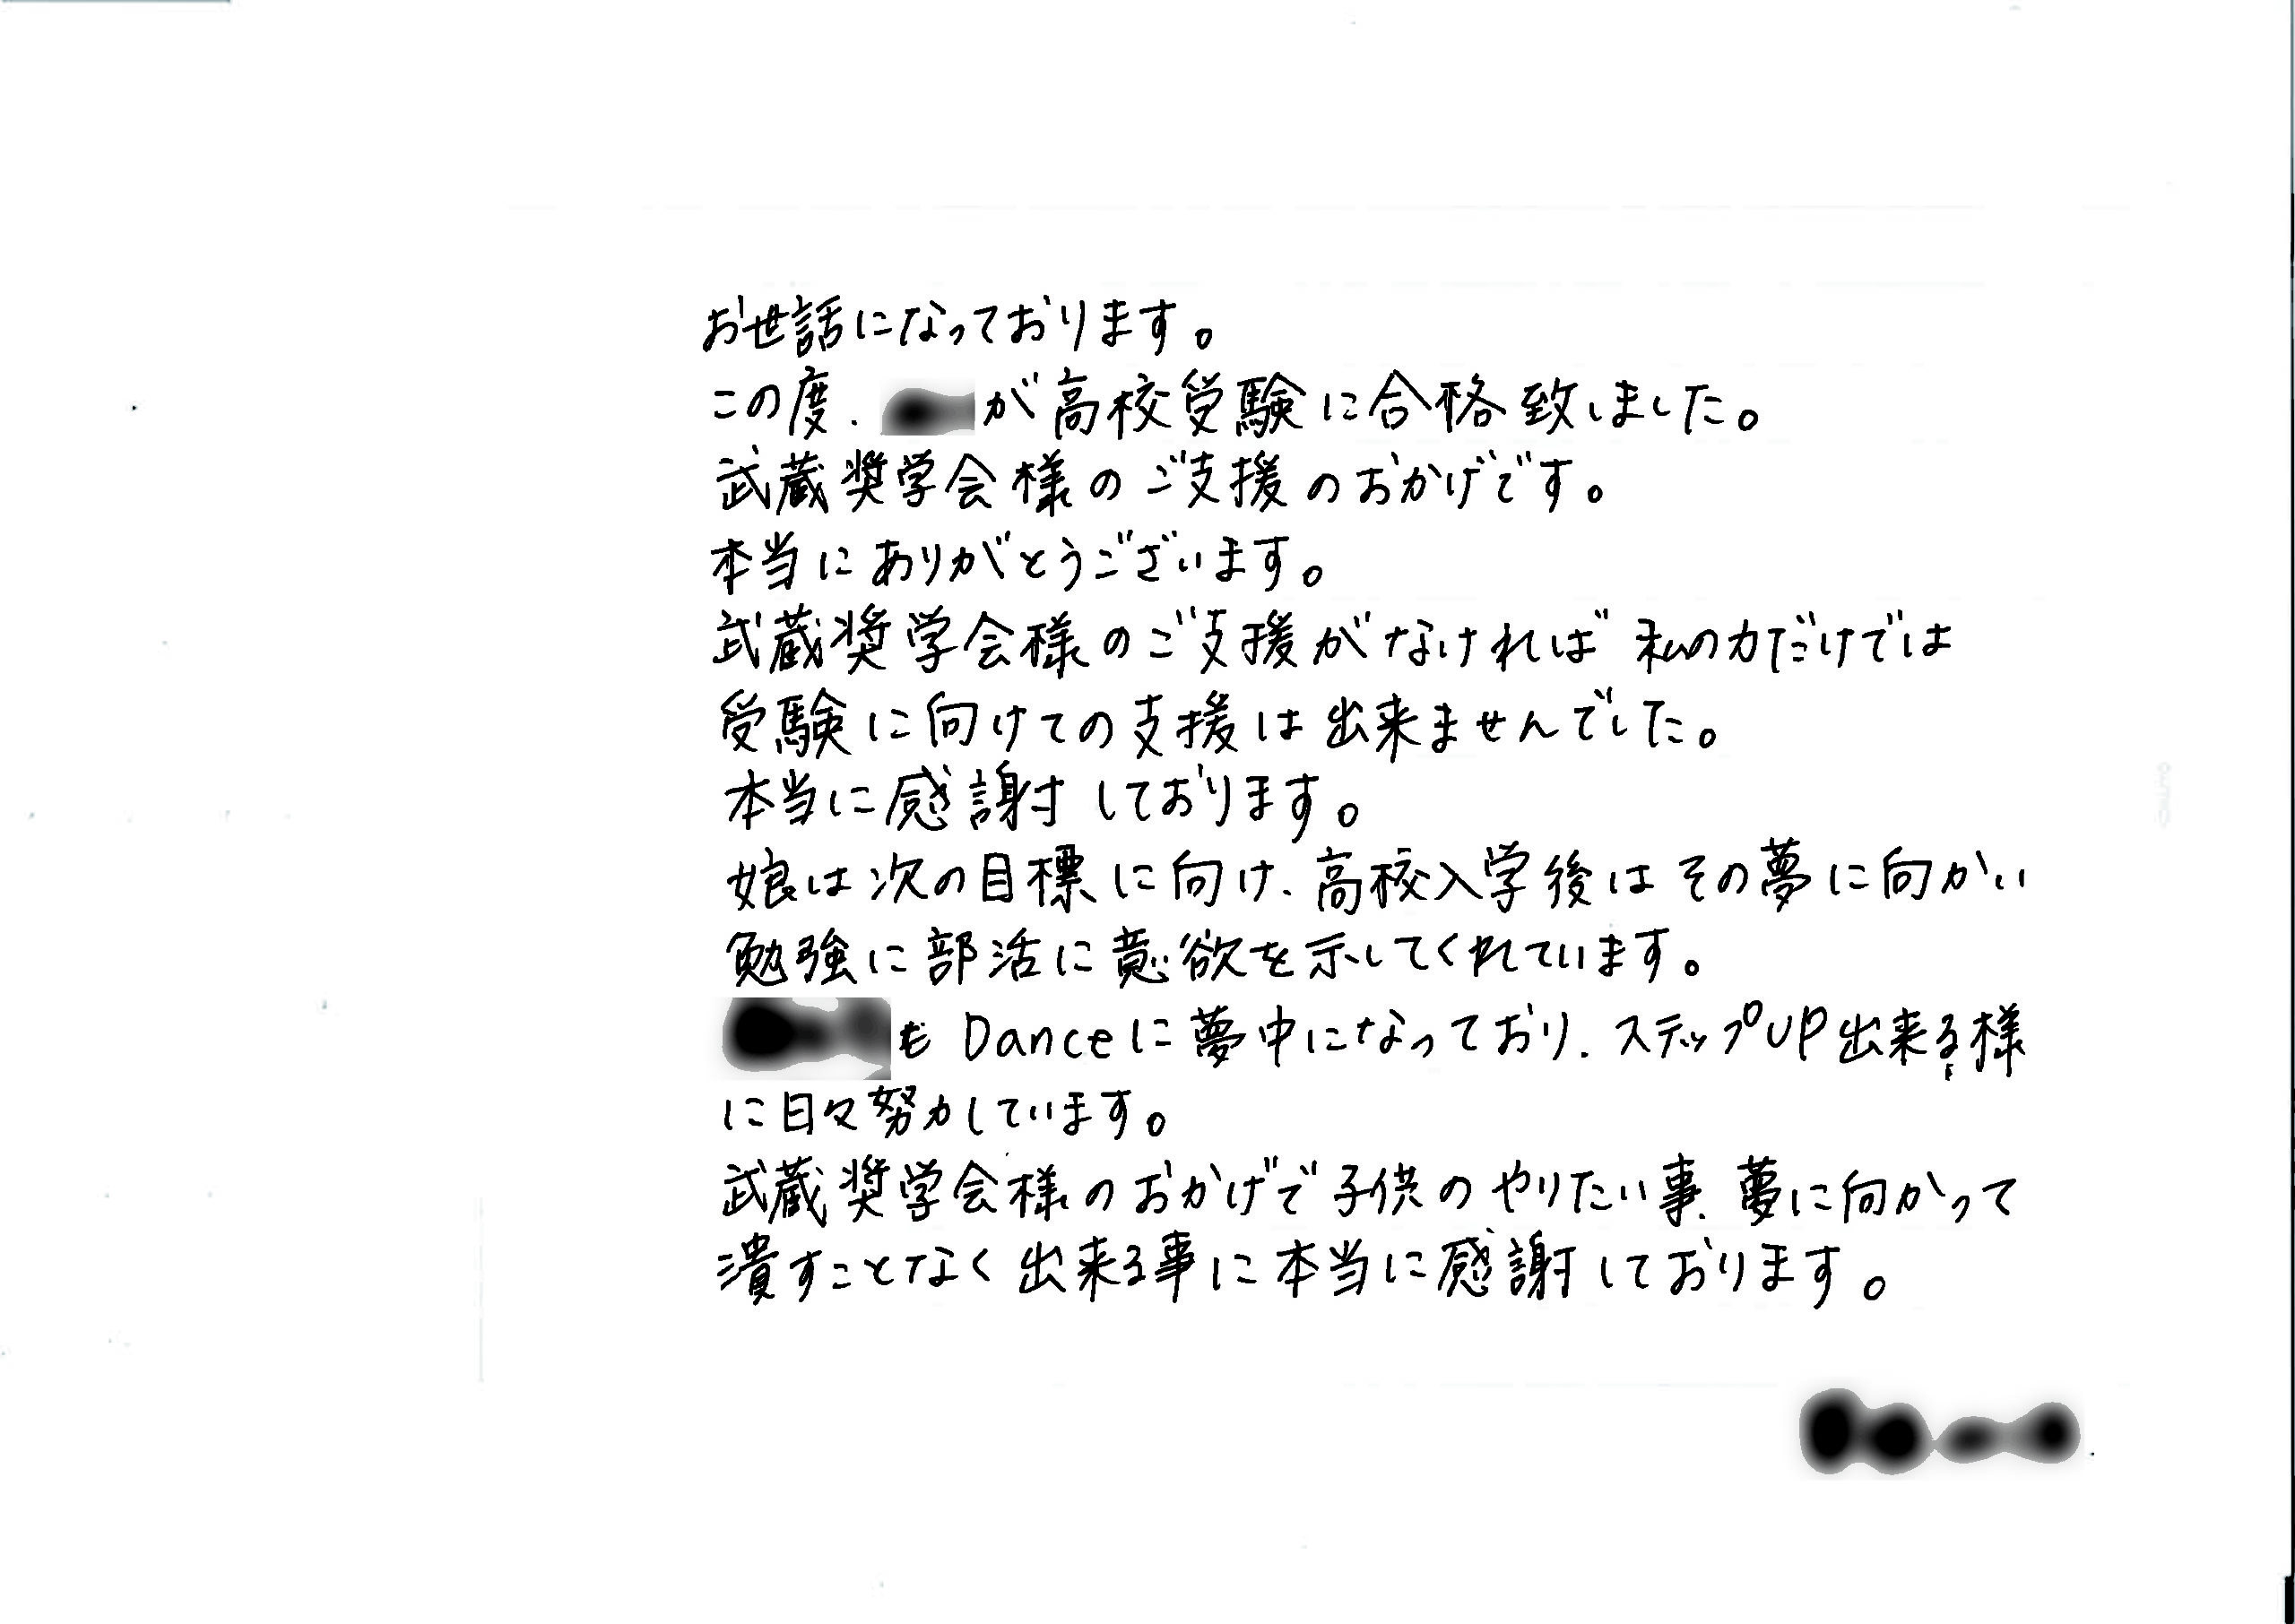 お世話になっております。
この度、が高校受験に合格致しました。
武蔵奨学会様のご支援のおかげです。
本当にありがとうございます。
武蔵奨学会様のご支援がなければ私の力だけでは
受験に向けての支援は出来ませんでした。
本当に感謝しております。
娘は次の目標に向け、高校入学後はその夢に向かい
勉強に部活に意欲を示してくれています。
もDanceに夢中になっており、ステップUP出来る様
に日々努力しています。
武蔵奨学会様のおかげで子供のやりたい事、夢に向かって
潰すことなく出来る事に本当に感謝しております。